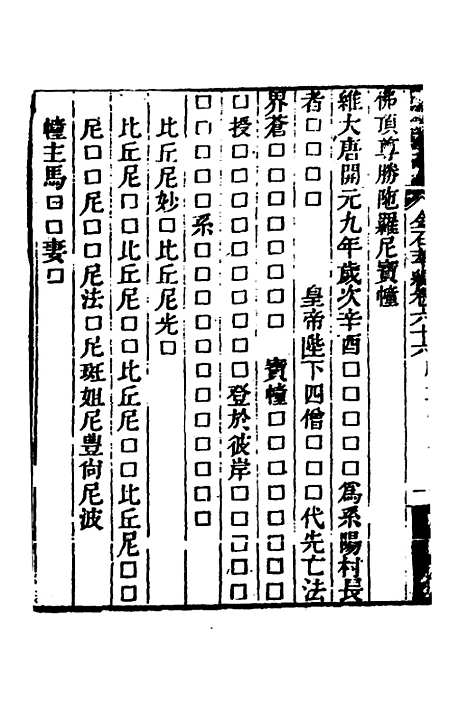 金石萃編卷六十六
佛頂尊勝陁羅尼寶幢
維大唐開元九年歲次辛酉□□□□□爲系陽村長
者□□□□　皇帝陛下四僧□□□代先亡法
界蒼□□□□□□□□　寶幢□□□□□□□□
□授□□□□□□□□□□登於彼岸□□□□□
□□□□□系□□□□□□□□□□□□
比丘尼妙□比丘尼光□
比丘尼□□比丘尼□□比丘尼□□比丘尼□□
尼□□尼□□尼法□尼斑姐尼豐尙尼波
幢主馬□□妻□